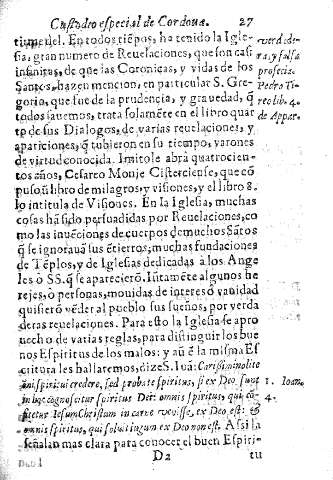 Custodio especial de Cordoua. 27
tiumedel. En todos tiēpos, ha tenido la Igle-
sia, gran numero de Reuelaciones, que son casi
infinitas, de que las Coronicas, y vidas de los
Santos, hazen mencion, en particular S. Gre-
gorio, que fue de la prudencia, y grauedad, q̄
todos sauemos, trata solamēte en el libro quar
to de sus Dialogos, de varias reuelaciones, y
apariciones, q̄ tubieron en su tiempo, varones
de virtud conocida. Imitole abrà quatrocien-
tos años, Cesareo Monje Cisterciense, que cō
puso, vn libro de milagros, y visiones, y el libro 8.
lo intitula de Visiones. En la Iglesia, muchas
cosas hā sido persuadidas por Reuelaciones, co
mo las inuēciones de cuerpos de muchos Sātos
q̄ se ignorauā sus ētierros; muchas fundaciones
de Tēplos, y de Iglesias dedicadas à los Ange
les ò SS. q̄ se aparecierō. Iūtamēte algunos he
rejes, ò personas, mouidas de interes ò vanidad
quisierō vēder al pueblo sus sueños, por verda
deras reuelaciones. Para esto la Iglesia se apro
uecho de varias reglas, para distinguir los bue
nos Espiritus de los malos: y aū ē la misma Es
critura les hallaremos, dize S. Iuā: Carissimi nolite
omni spiritui credere, sed probate spiritus, si ex Deo sunt
in hoc cognoscitur spiritus Dei: omnis spiritus, qui cō
fitetur Iesum Christum in carne venisse, ex Deo est: &
omnis spiritus, qui soluit iesum ex Deo non est. Assi la
señalan mas clara para conocer el buen Espiri-
D2 tu
verdade-
ra, y falsa
profecia.
Pedro Ti-
reo lib. 4.
de Appar.
1. Ioan.
4.